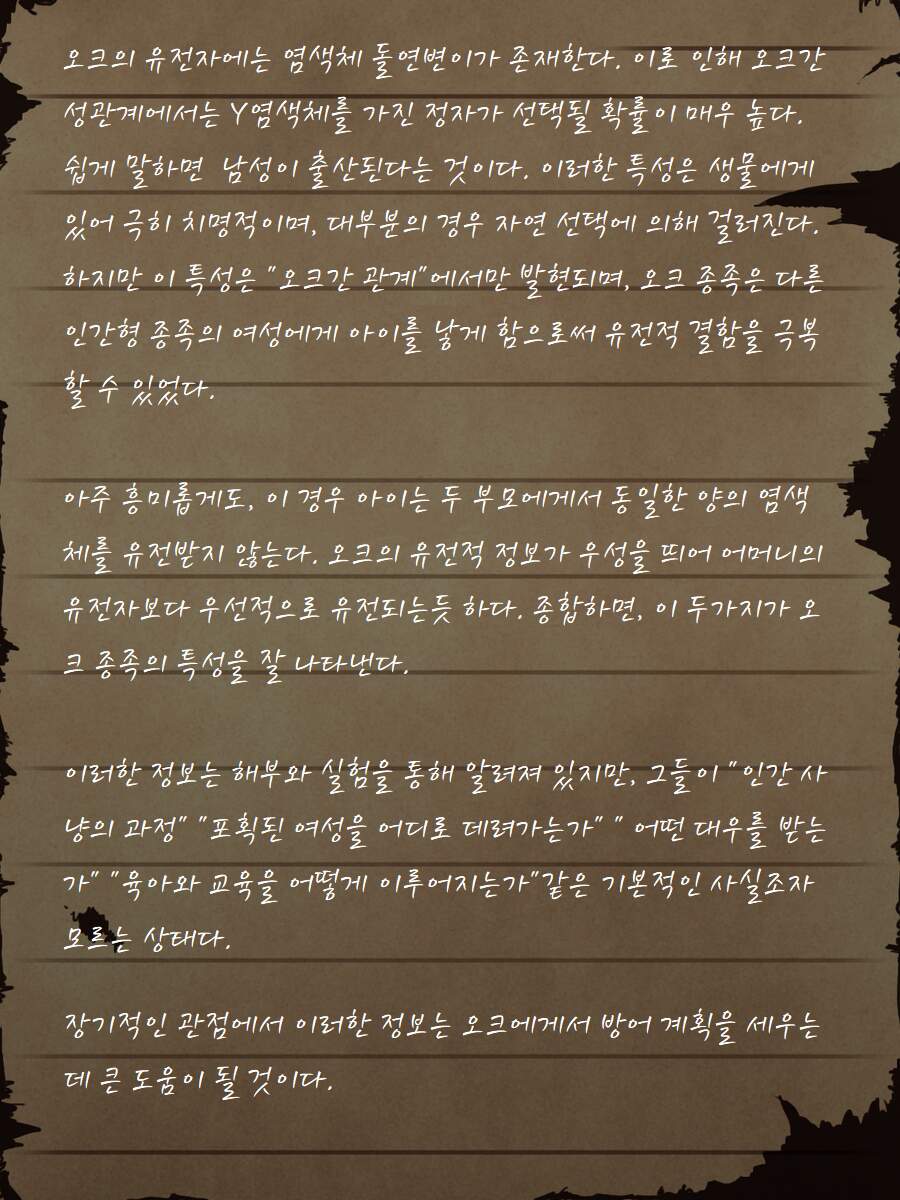 오크의 유전자에는 염색체 돌연변이가 존재한다. 이로 인해 오크간
성관계에서는 Y염색체를 가진 정자가 선택될 확률이 매우 높다.
쉽게 말하면  남성이 출산된다는 것이다. 이러한 특성은 생물에게
있어 극히 치명적이며, 대부분의 경우 자연 선택에 의해 걸러진다.
하지만 이 특성은 "오크간 관계"에서만 발현되며, 오크 종족은 다른
인간형 종족의 여성에게 아이를 낳게 함으로써 유전적 결함을 극복
할 수 있었다.
아주 흥미롭게도, 이 경우 아이는 두 부모에게서 동일한 양의 염색
체를 유전받지 않는다. 오크의 유전적 정보가 우성을 띄어 어머니의
유전자보다 우선적으로 유전되는듯 하다. 종합하면, 이 두가지가 오
크 종족의 특성을 잘 나타낸다.
이러한 정보는 해부와 실험을 통해 알려져 있지만, 그들이 "인간 사
냥의 과정" "포획된 여성을 어디로 데려가는가" " 어떤 대우를 받는
가" "육아와 교육을 어떻게 이루어지는가"같은 기본적인 사실조차
모르는 상태다.
장기적인 관점에서 이러한 정보는 오크에게서 방어 계획을 세우는
데 큰 도움이 될 것이다.